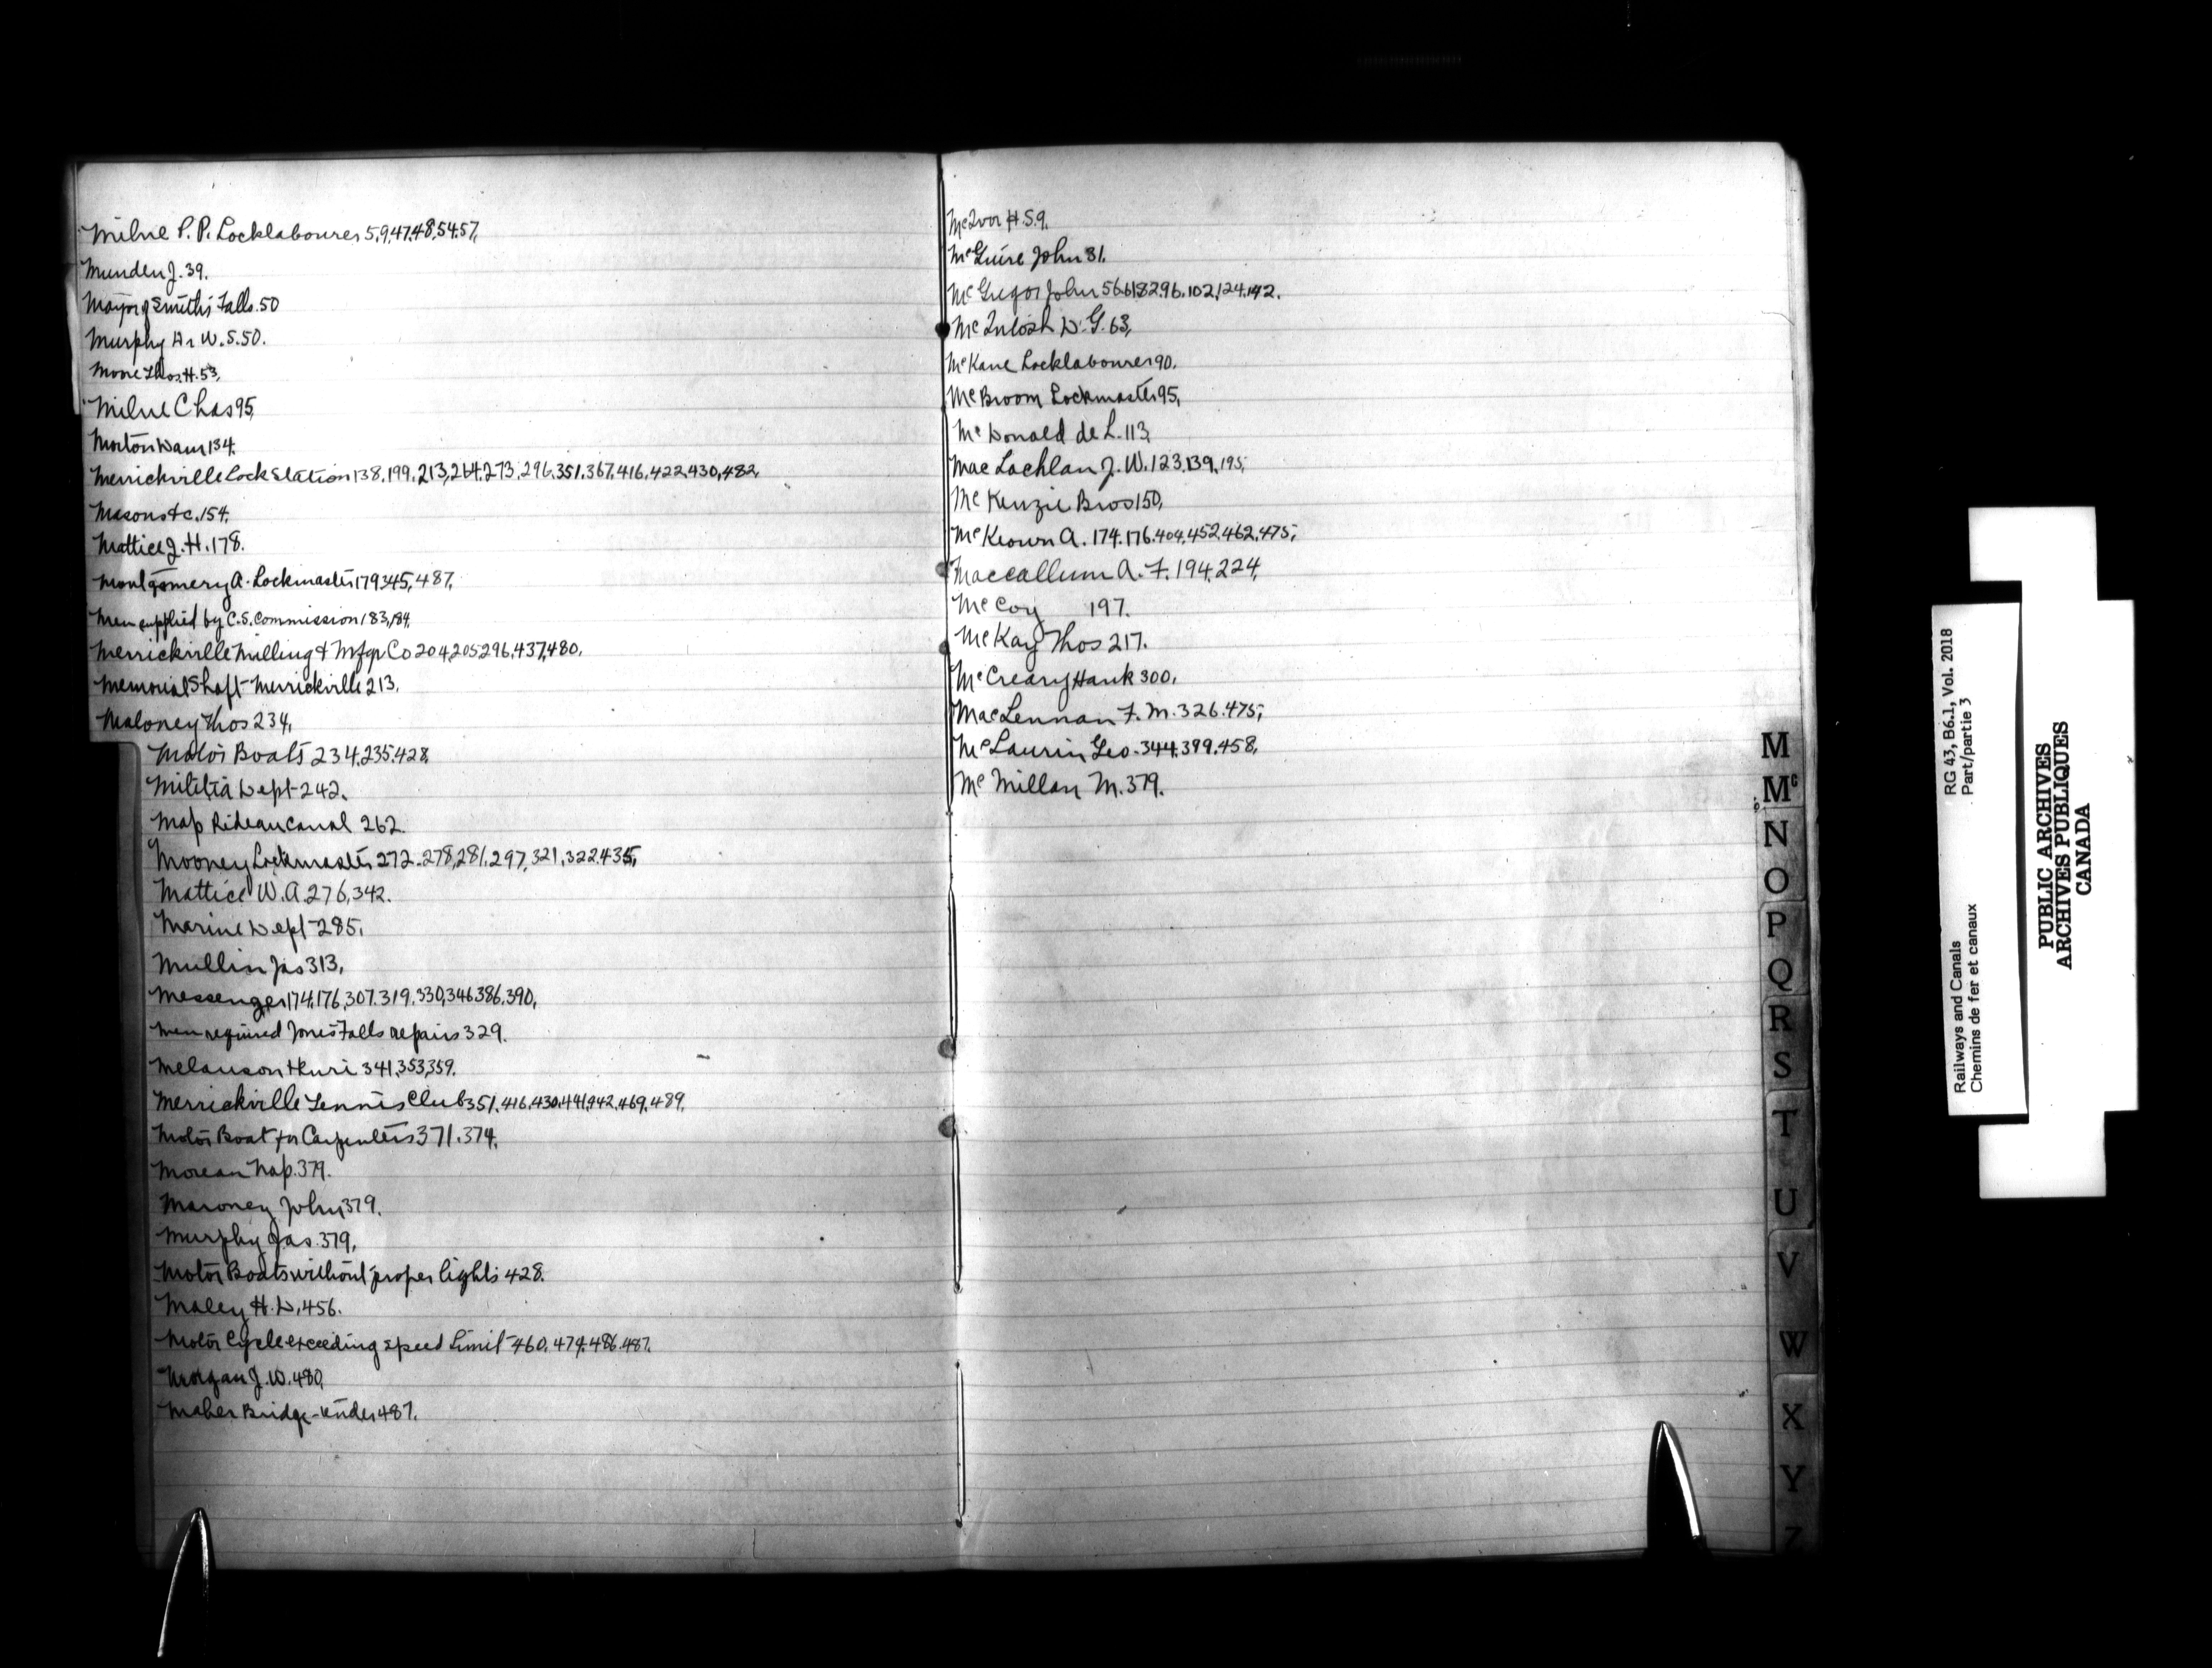 Milne P. P. Locklabourer 5,9,47,48,54,57,
Munden J. 39.
Mayor of Smith's Falls. 50
Murphy Dr W. S. 50.
Moore Thos. H. 53,
Milne Chas 95,
Morton Dam 134.
Merrickville Lock Station 138,199,213,264,273,296,351,367,416,422,430,482,
Masons &c. 154,
Mattice J. H. 178.
Montgomery A. Lockmaster 179,345,487,
Men supplied by C.S. Commission 183,184,
Merrickville Milling & Mfgr Co 204,205,296,437,480,
Memorial Shaft Merrickville 213,
Maloney Thos 234,
Motor Boats 234,235,428,
Militia Dept 242.
Map Rideau Canal 262.
Mooney Lockmaster 272.278,281,297,321,322,435,
Mattice W. A. 276,342.
Marine Dept 285,
Mullin Jas 313,
Messenger 174,176,307,319,330,346,386,390,
Men required Jones Falls repairs 329.
Melanson Henri 341,353,359.
Merrickville Tennis Club 351,416,430,441,442,469,489,
Motor Boat for Carpenters 371,374,
Moreau Nap. 379.
Maroney John 379.
Murphy Jas. 379,
Motor Boats without proper lights 428.
Maley H. D. 456.
Motor Cycle exceeding speed Limit 460,474,486,487,
Morgan J. W. 480,
Maher Bridge-tender 487.
McIvor H. 5.9,
McGuire John 31,
McGregor John 56,61,82,96,102,124,142,
McIntosh D. G. 63,
McKane Locklabourer 90.
McBroom Lockmaster 95,
McDonald de L. 113,
MacLachlan J. W. 123,139,195,
McKenzie Bros 150,
McKeown A. 174,176,404,452,462,475,
Maccallum A. F. 194,224,
McCoy 197.
McKay Thos 217.
McCreary Hank 300,
MacLennan F. M. 326,475,
McLaurin Geo. 344,399,458,
McMillan M. 379.
M
Mc
N
O
P
Q
R
S
T
U
V
W
X
Y
Z
RG 43, B6.1, Vol. 2018
Part/partie 3
Railways and Canals
Chemins de fer et canaux
PUBLIC ARCHIVES
ARCHIVES PUBLIQUES
CANADA